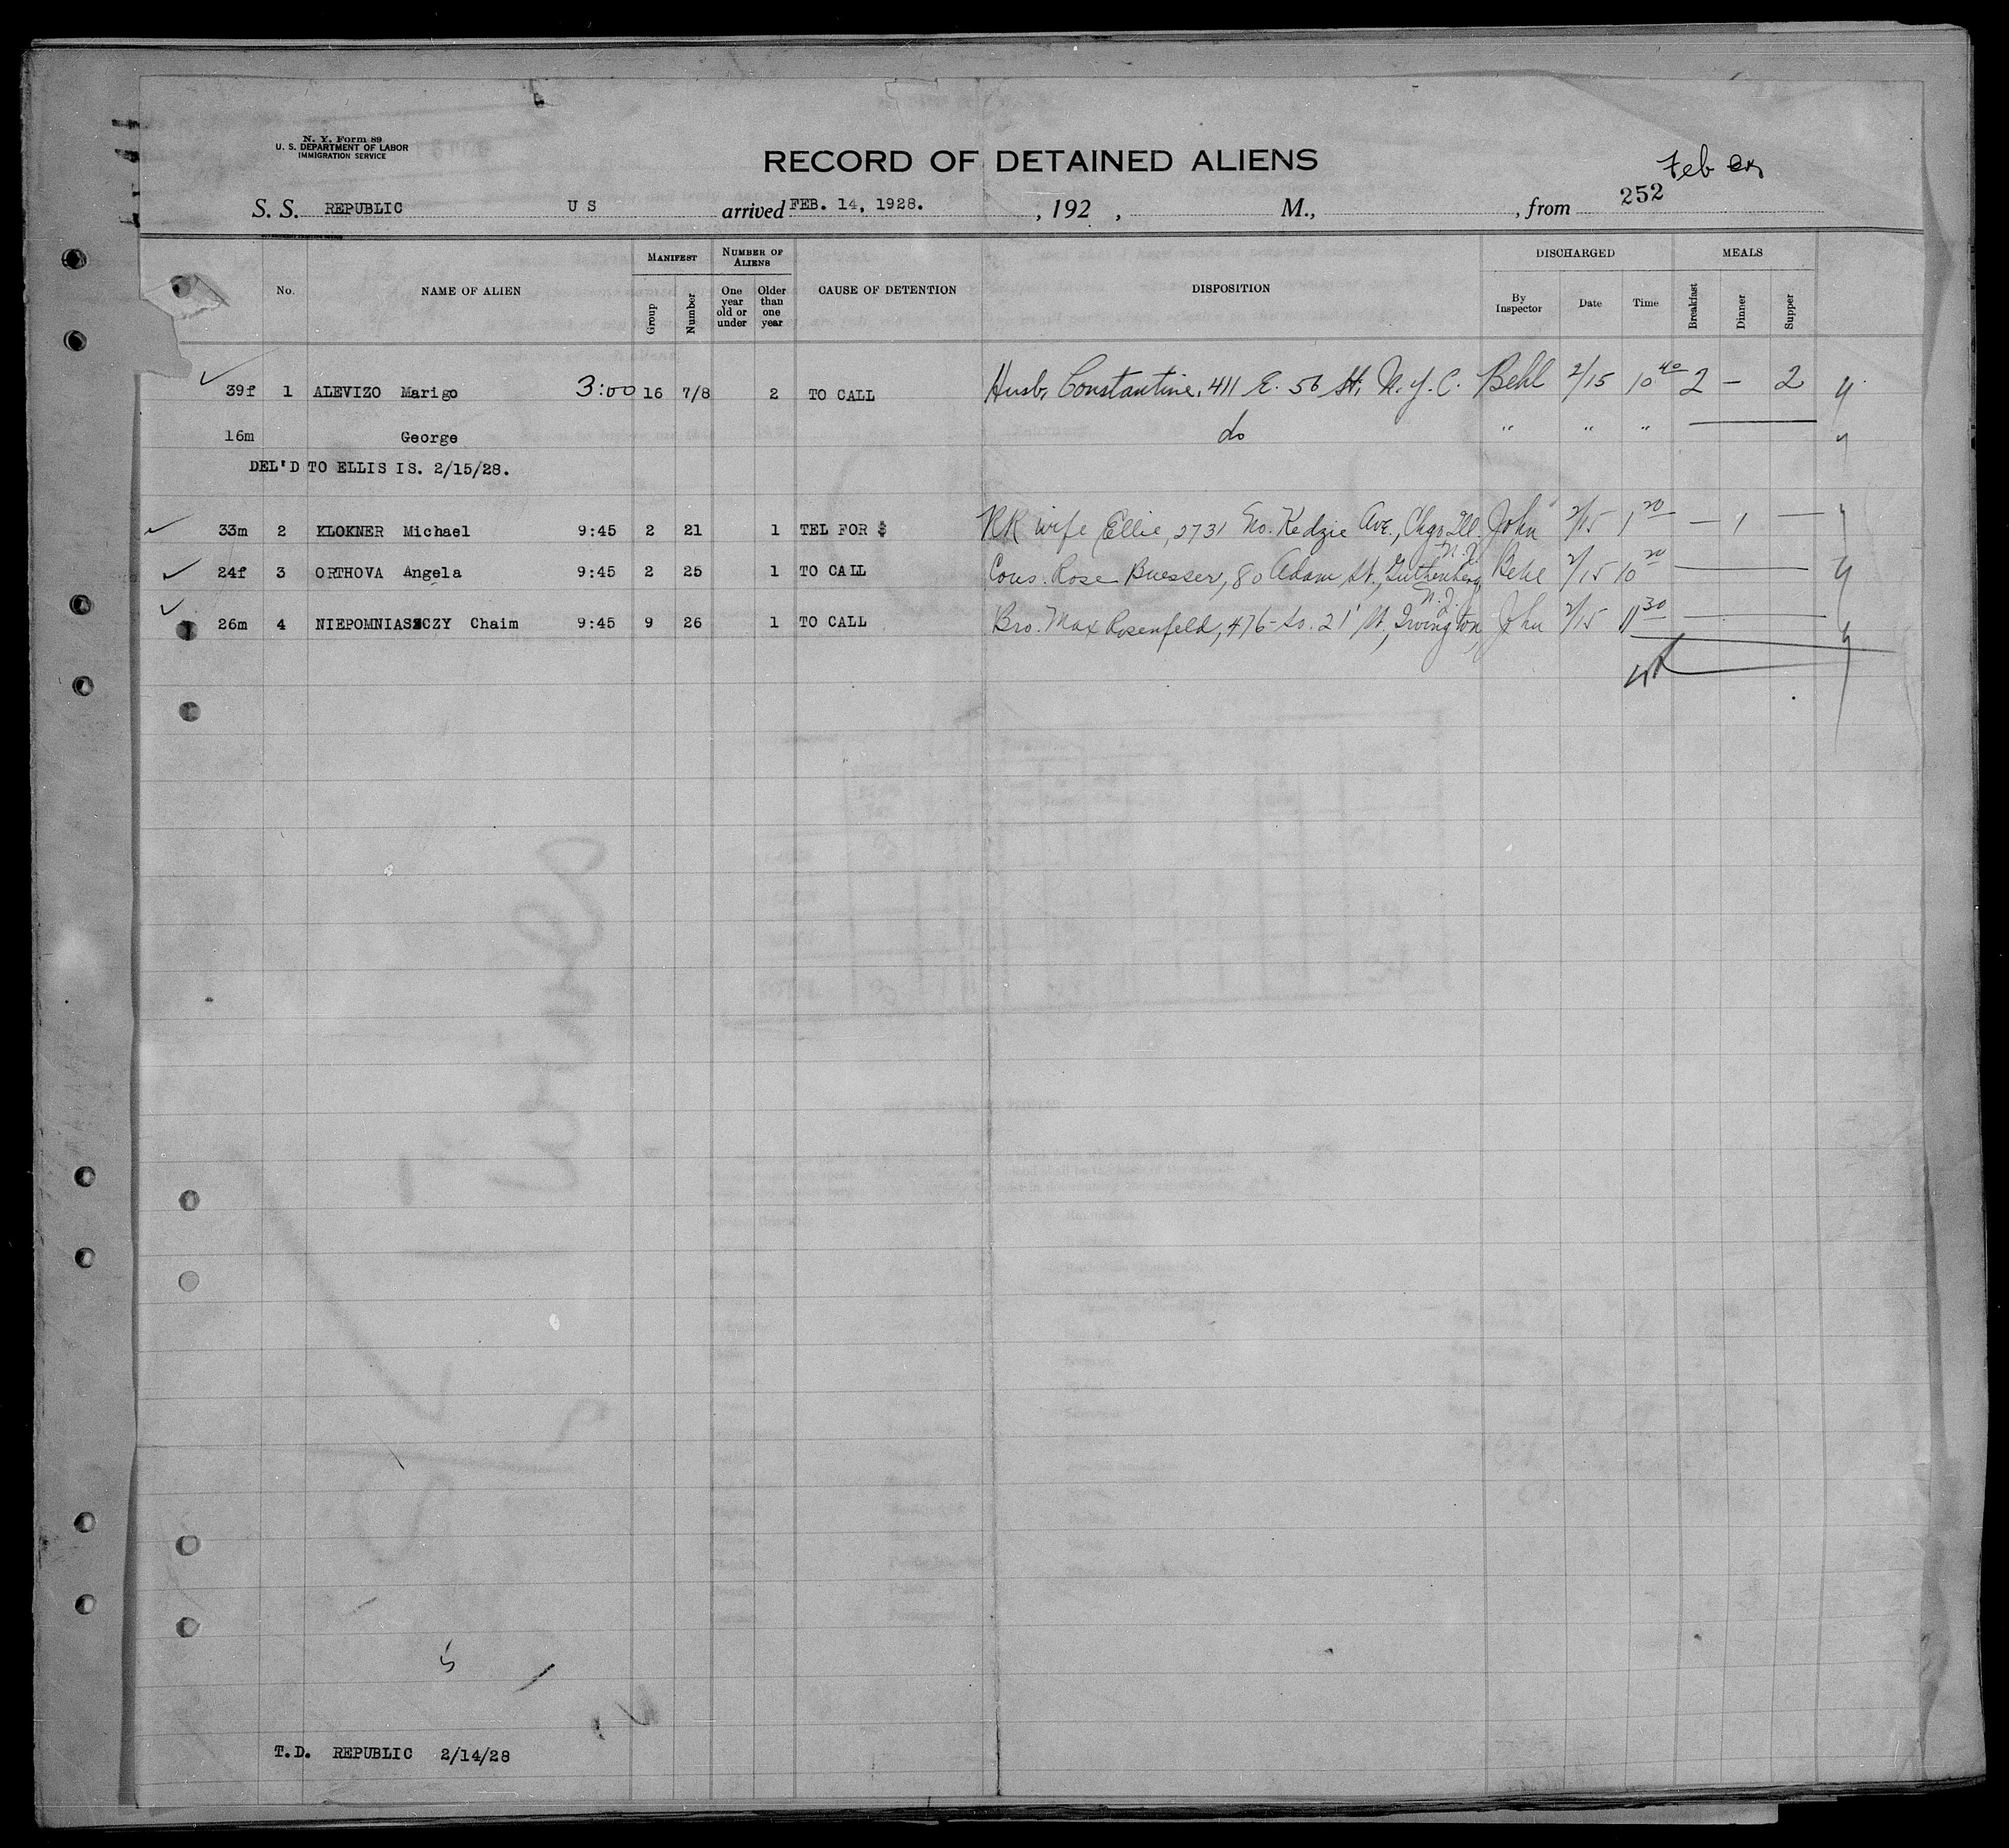 N. Y. Form 89
U. S. DEPARTMENT OF LABOR
IMMIGRATION SERVICE
RECORD OF DETAINED ALIENS
Feb
S. S. REPUBLIC U S arrived FEB. 14, 1928. , 192 , M., , from 252
No. NAME OF ALIEN MANIFEST Group Number NUMBER OF ALIENS One year old or under Older than one year CAUSE OF DETENTION DISPOSITION DISCHARGED By Inspector Date Time MEALS Breakfast Dinner Supper
39f 1 ALEVIZO Marigo 3:00 16 7/8 2 TO CALL Husb, Constantine, 411 E. 56 St, N.Y.C. Behl 2/15 10 40 2 — 2
16m George do " " "
DEL'D TO ELLIS IS. 2/15/28.
33m 2 KLOKNER Michael 9:45 2 21 1 TEL FOR $ RR wife Ellie, 2731 No. Kedzie Ave., Chgo Ill. John 2/15 1 20 — 1 —
24f 3 ORTHOVA Angela 9:45 2 25 1 TO CALL Cous. Rose Buesser, 80 Adam St., Guthenberg, N.J. Behl 2/15 10 20 —
26m 4 NIEPOMNIASZCZY Chaim 9:45 9 26 1 TO CALL Bro. Max Rosenfeld, 476 So. 21 St., Irvington, N.J. John 2/15 11 30 —
5
T.D. REPUBLIC 2/14/28